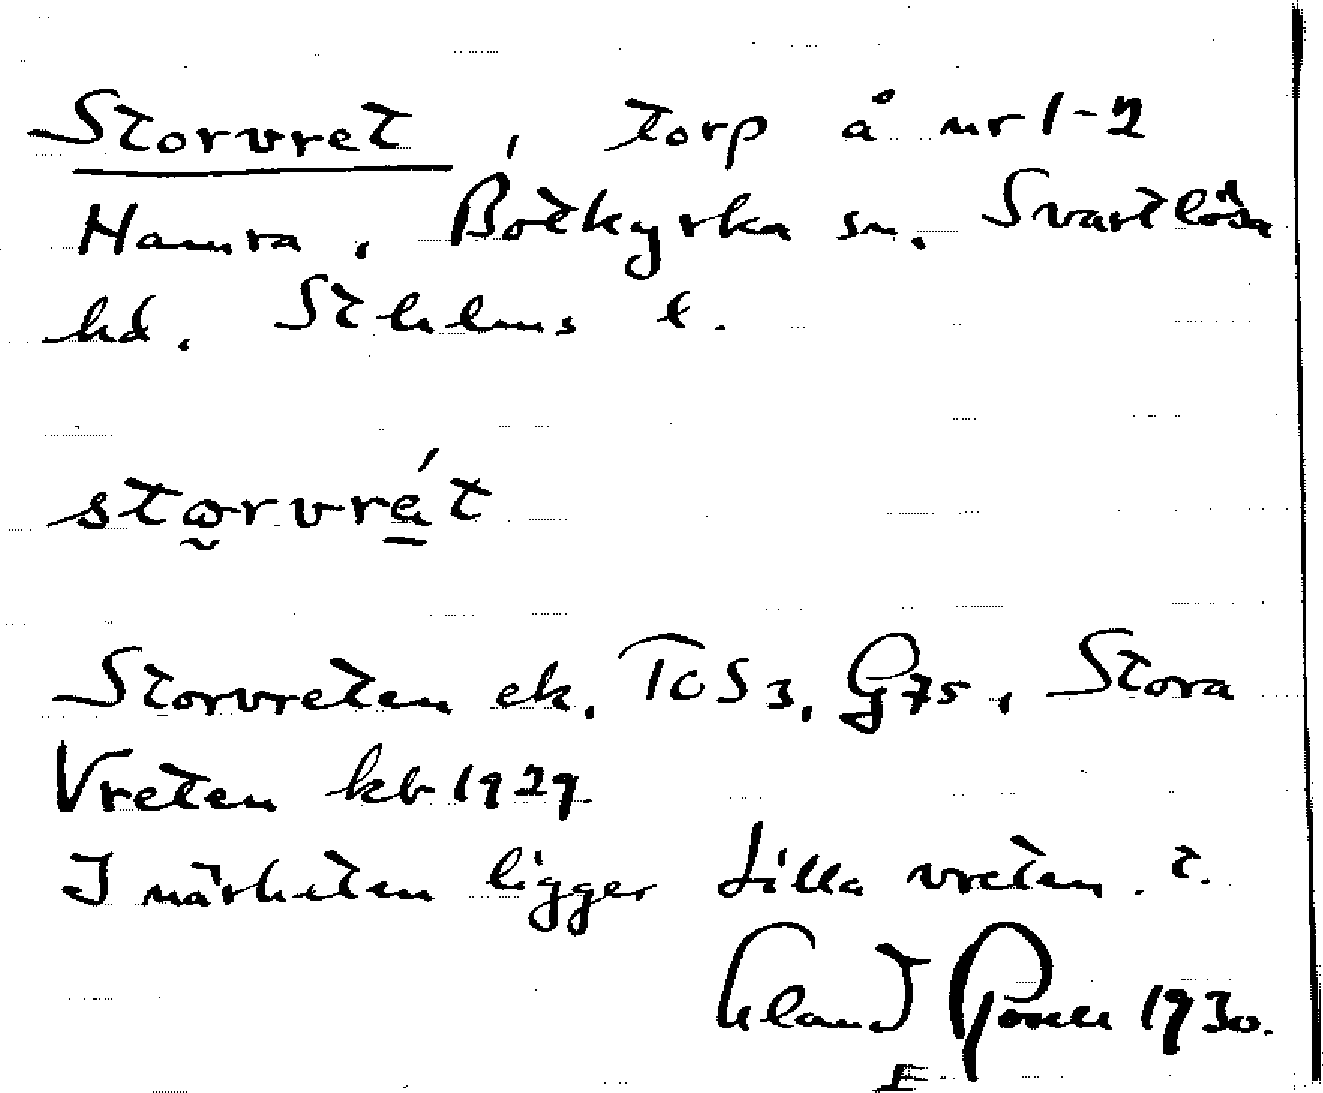 Storvret, torp å nr 1-2
Hamra, Botkyrka sn. Svartlösa
hd. Sthlms l.
storvrét
Storvreten ek. TOS3, G75, Stora
Vreten kb 1929
I närheten ligger Lilla vreten. t.
1930.